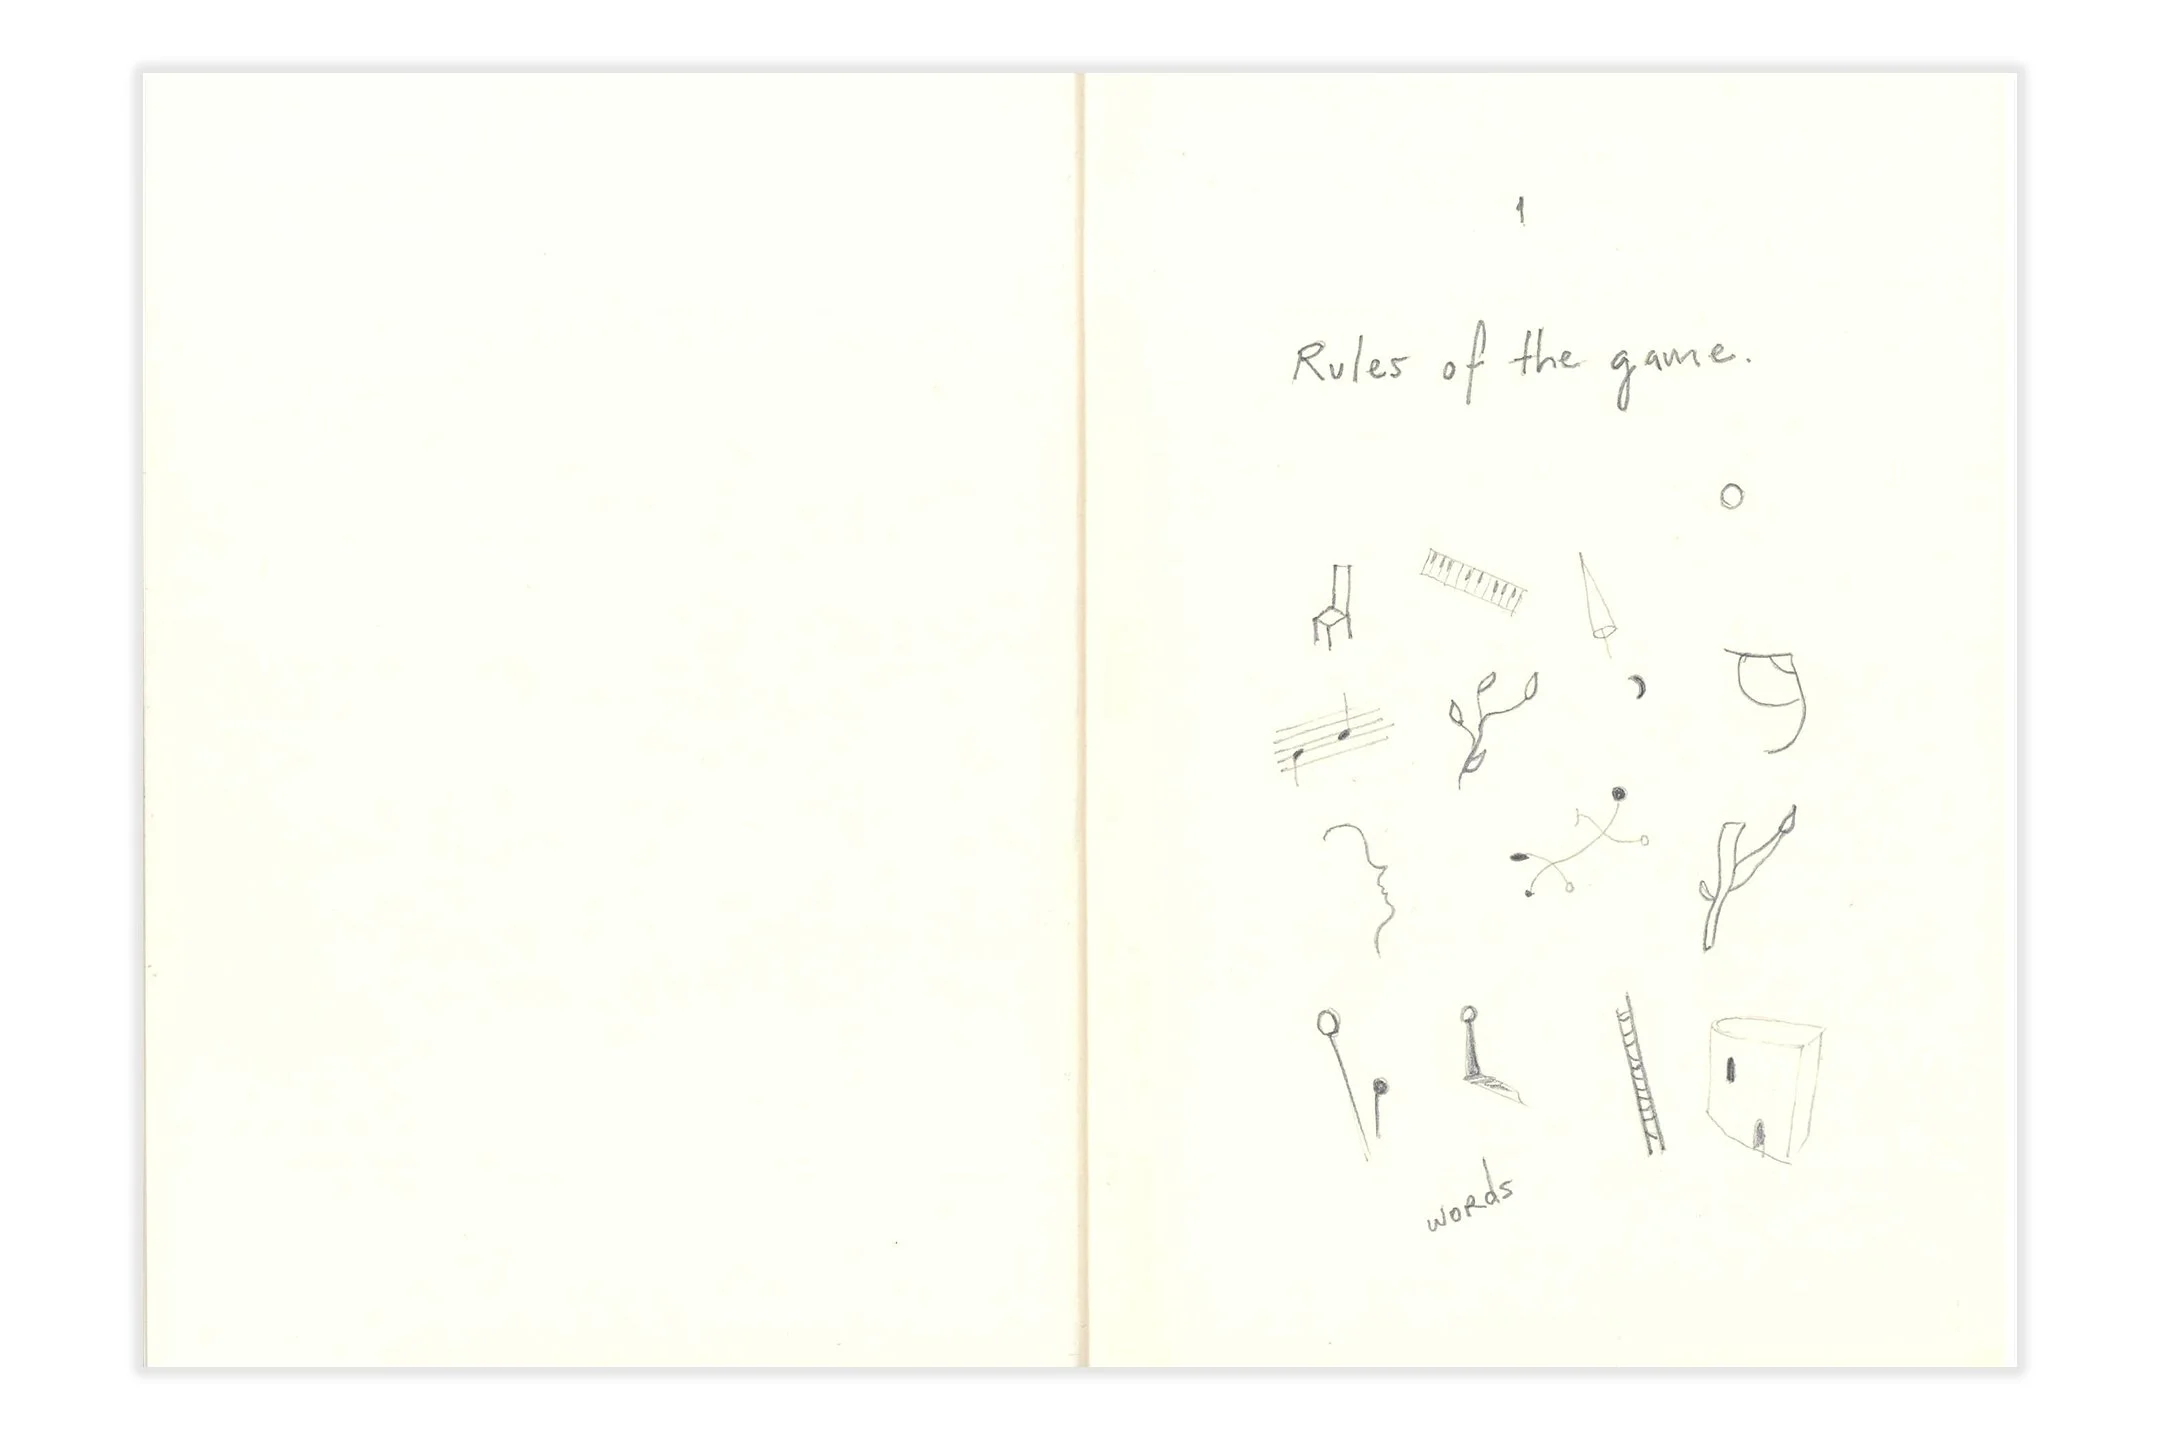 1
Rules of the game.
words